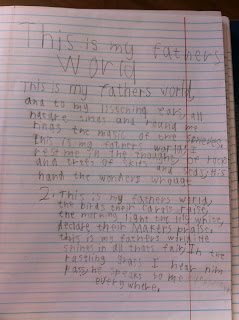 This is my fathers
World
This is my fathers world,
and to my listening ears, all
nature sings and round me
rings the music of the spheres.
this is my fathers world: I
rest me in the thought of rocks
and trees of skies and seas, his
hand the wonders wrought
2. This is my fathers world,
the birds their carols raise,
the morning light the lily white,
declare their Makers praise,
this is my fathers world: He
shines in all thats fair, In the
rustling grass I hear him
pass, he speaks to me
everywhere,